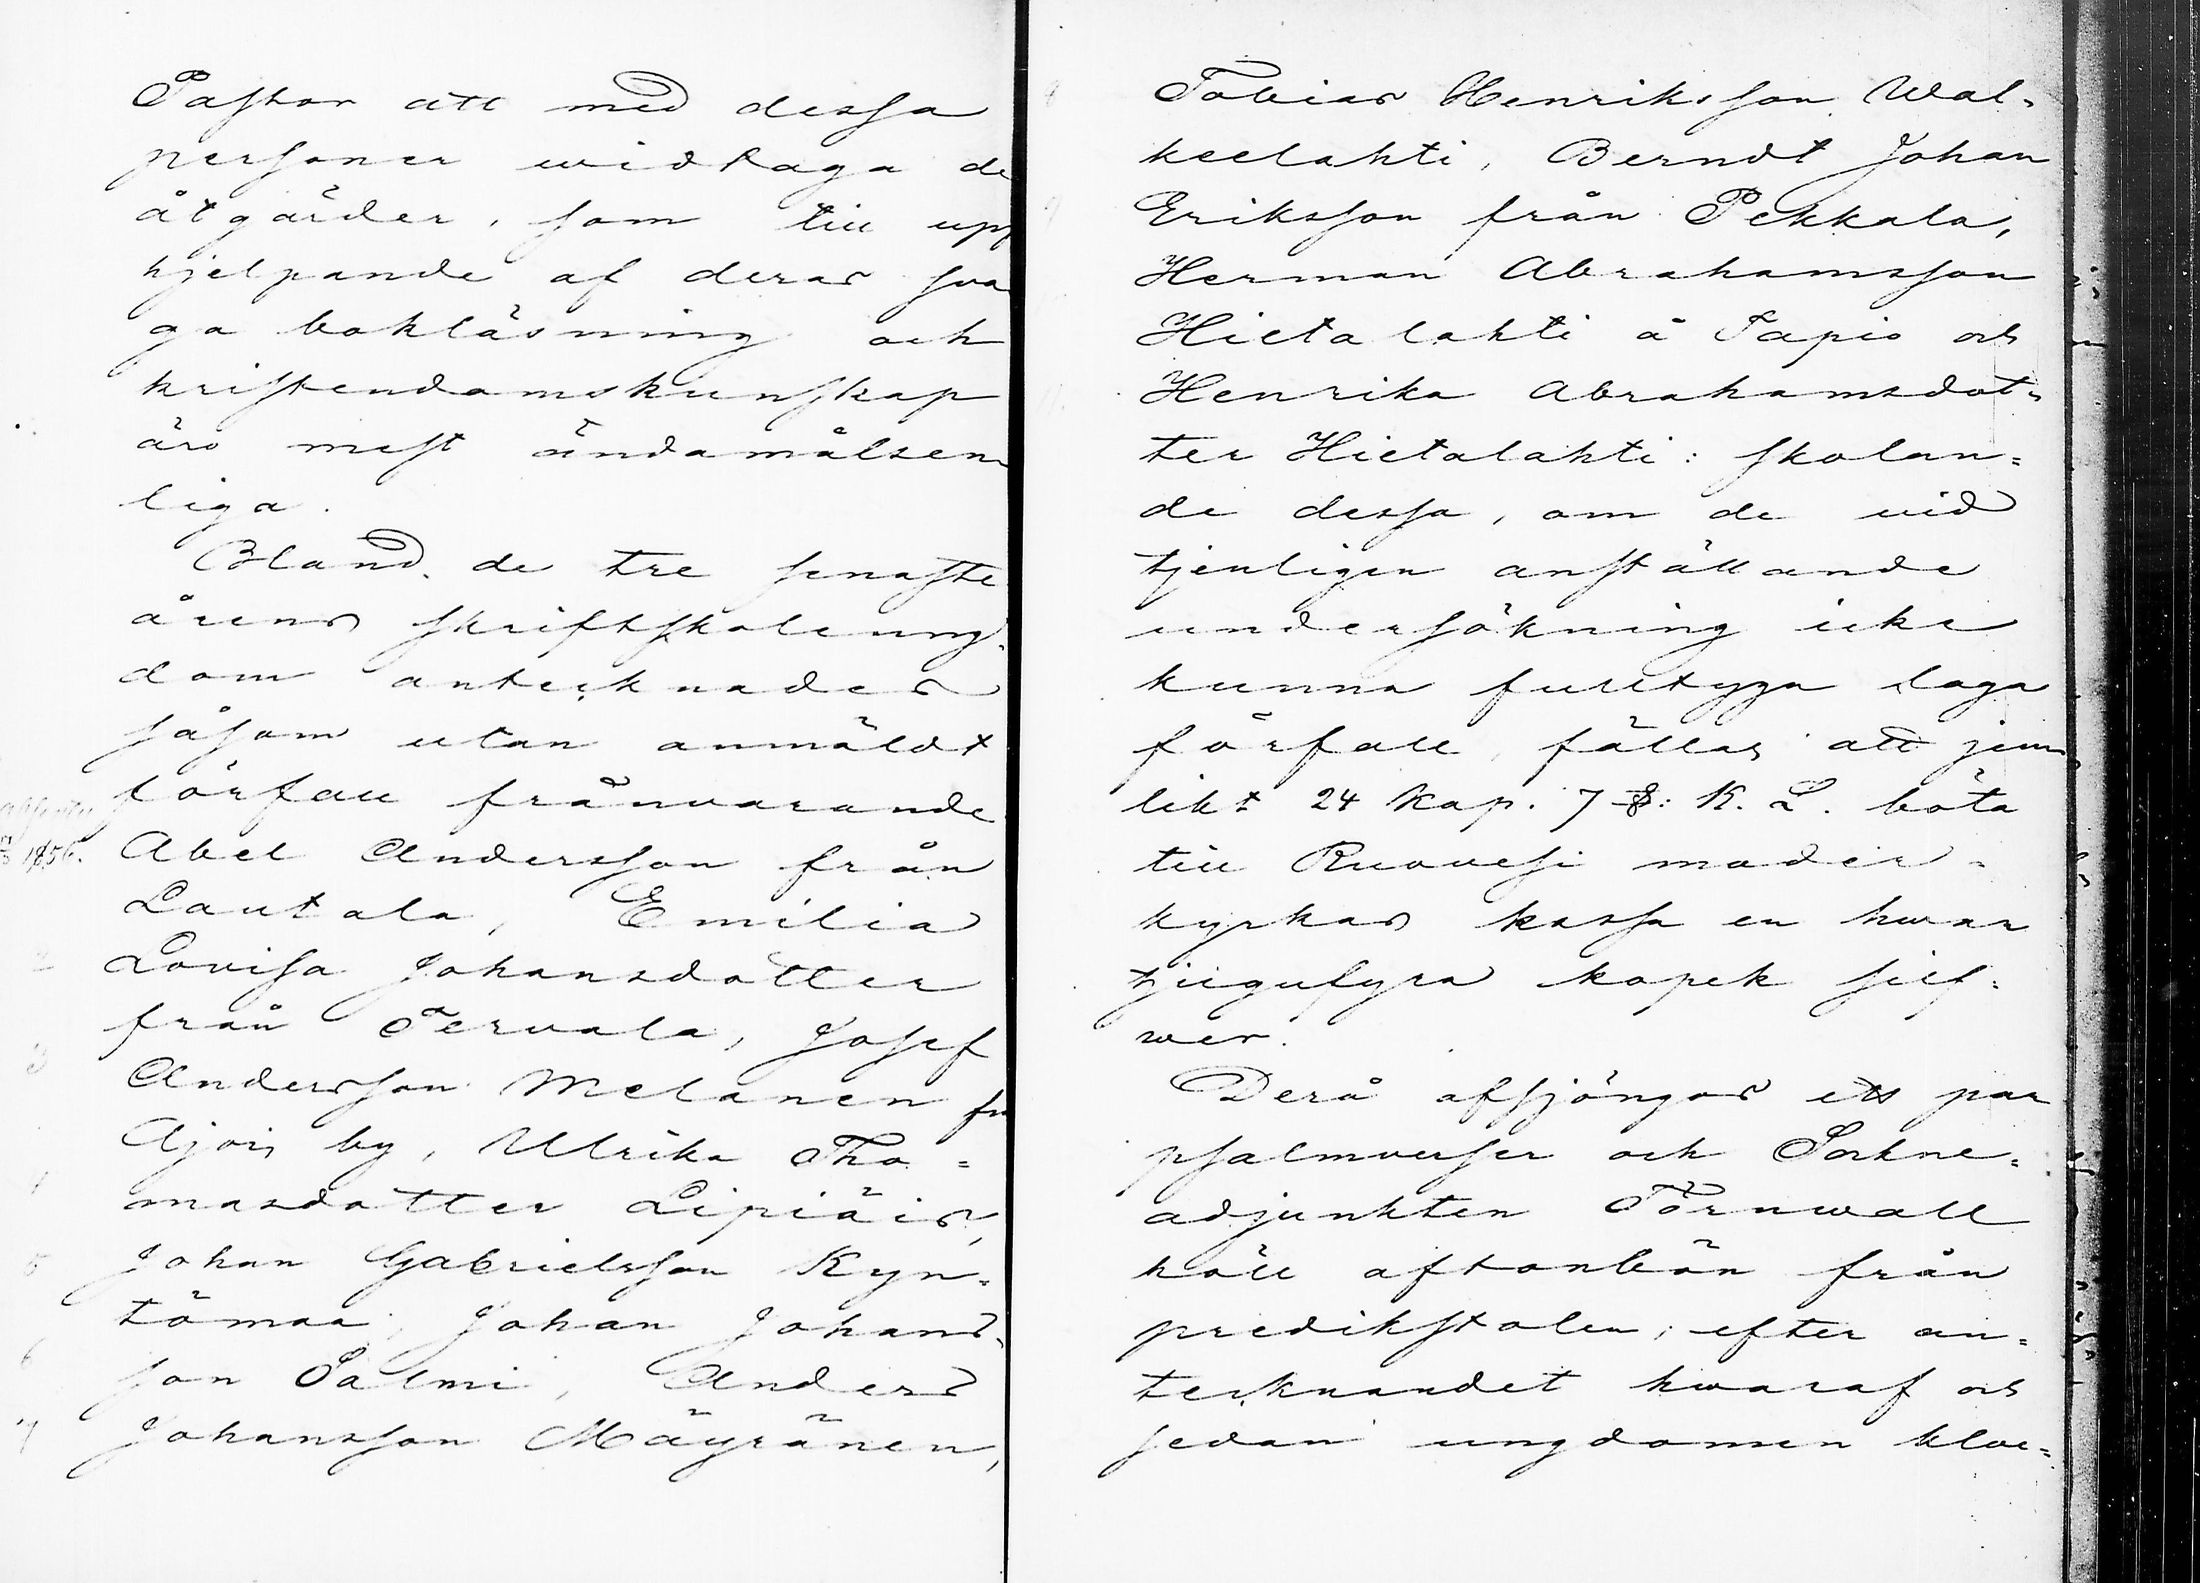 Pastor att med dessa
personer widtaga de
åtgärder, som till upp
hjelpande af deras sva
ga bokläsning och
kristendomskunskap
äro mest ändamålsen
liga.
Bland de tre senaste
årens skriftskoleung-
dom antecknades
såsom utan anmäldt
förfall frånvarande
1856. Abel Andersson från
Lautala, Emilia
2 Lovisa Johansdotter
från Tervala, Josef
3 Andersson Melanen fr
Ajois by, Ulrika Tho=
4 masdotter Lipiäis,
5 Johan Gabrielsson Kyn=
tömaa, Johan Johans-
6 son Salmi, Anders
7 Johansson Mäyränen,
8 Tobias Henriksson Wal-
keelahti, Berndt Johan
9 Eriksson från Pekkala,
Herman Abrahamsson
Hietalahti å Tapio och
11. Henrika Abrahamsdot-
ter Hietalahti: skolan=
de dessa, om de vid
tjenligen anställande
undersökning icke
kunna fulltyga laga
förfall, fällas att jem
likt 24 Kap. 7 §: K. L. böta
till Ruovesi moder-
kyrkas kassa en hwar
tjugufyra kopek silf=
wer.
Derå afsjöngos ett par
psalmverser och Sockne=
adjunkten Törnwall
höll aftonbön från
predikstolen; efter an=
tecknandet hwaraf och
sedan ungdomen blve=